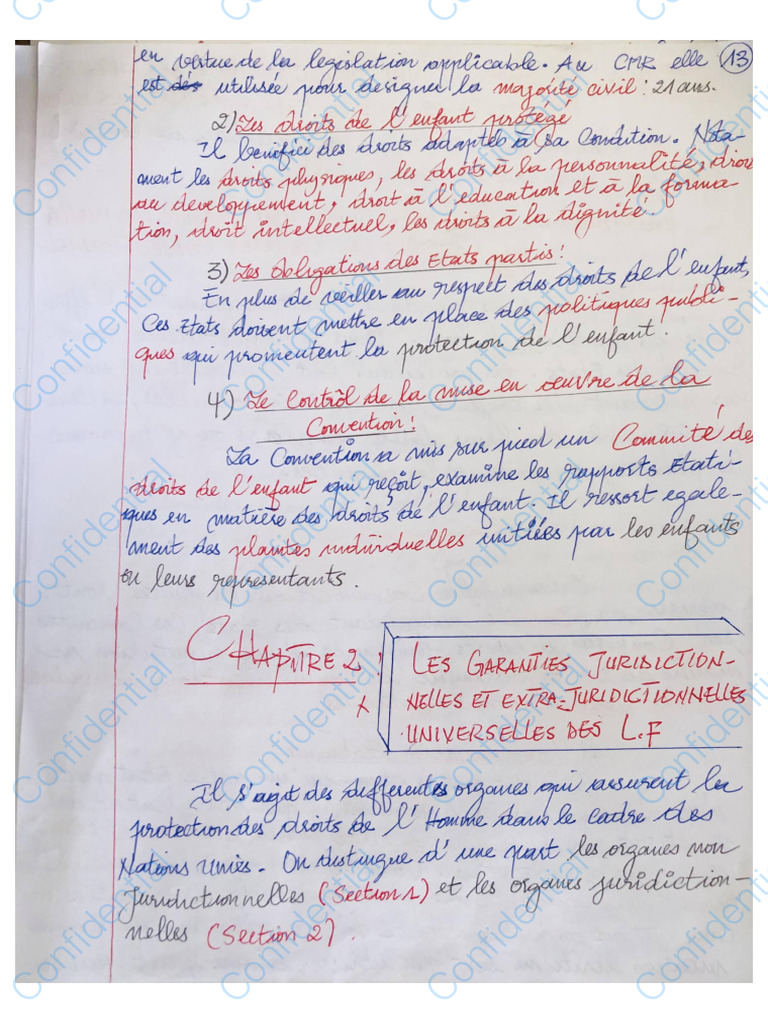 en vertue de la legislation applicable. Au CMR elle (13)
est dés utilisée pour designer la majorité civil : 21 ans.
2) Les droits de l'enfant protégé
Il benéficie des droits adaptés à sa Condition. Nota-
ment les droits physiques, les droits à la personnalité, droit
au developpement, droit à l'education et à la forma-
tion, droit intellectuel, les droits à la dignité.
3) Les Obligations des Etats partis :
En plus de veiller au respect des droits de l'enfant,
Ces Etats doivent mettre en place des politiques publi-
ques qui promeutent la protection de l'enfant.
4) Le Contrôl de la mise en oeuvre de la
Convention :
La Convention a mis sur pied un Committé des
droits de l'enfant qui reçoit, examine les rapports Etati-
ques en matière des droits de l'enfant. Il ressort egale-
ment des plaintes individuelles initiées par les enfants
ou leurs representants.
CHAPITRE 2 : LES GARANTIES JURIDICTION-
NELLES ET EXTRA-JURIDICTIONNELLES
UNIVERSELLES DES L.F
Il s'agit des differentes organes qui assurent la
protection des droits de l'Homme dans le cadre des
Nations Uniés. On distingue d'une part les organes non
Juridictionnelles (Section 1) et les organes juridiction-
nelles (Section 2).
Confidential